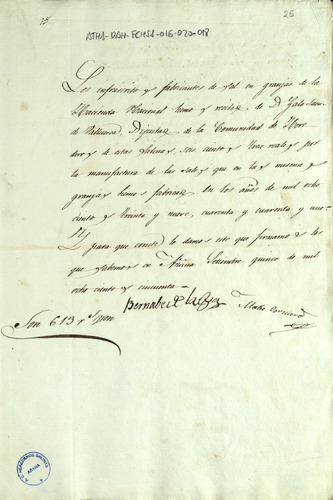 15
25
ATHA-DAH-FCHSA-016-020-018
Los infrascritos fabricantes de sal en granjas de la
Hacienda Nacional hemos recibido de Dn
de la Comunidad de
de estas Salinas, seis cientos y trece reales por
la manufactura de las sales que en la misma
granja hemos fabricado en los años de mil ocho
ciento y treinta y nueve, cuarenta y cuarenta y uno
Y para que conste le damos este que firmamos de los
que sabemos en Añana Setiembre quince de mil
ocho ciento y cincuenta
Son 613 rs von
Bernabe de
Matias
AÑANA